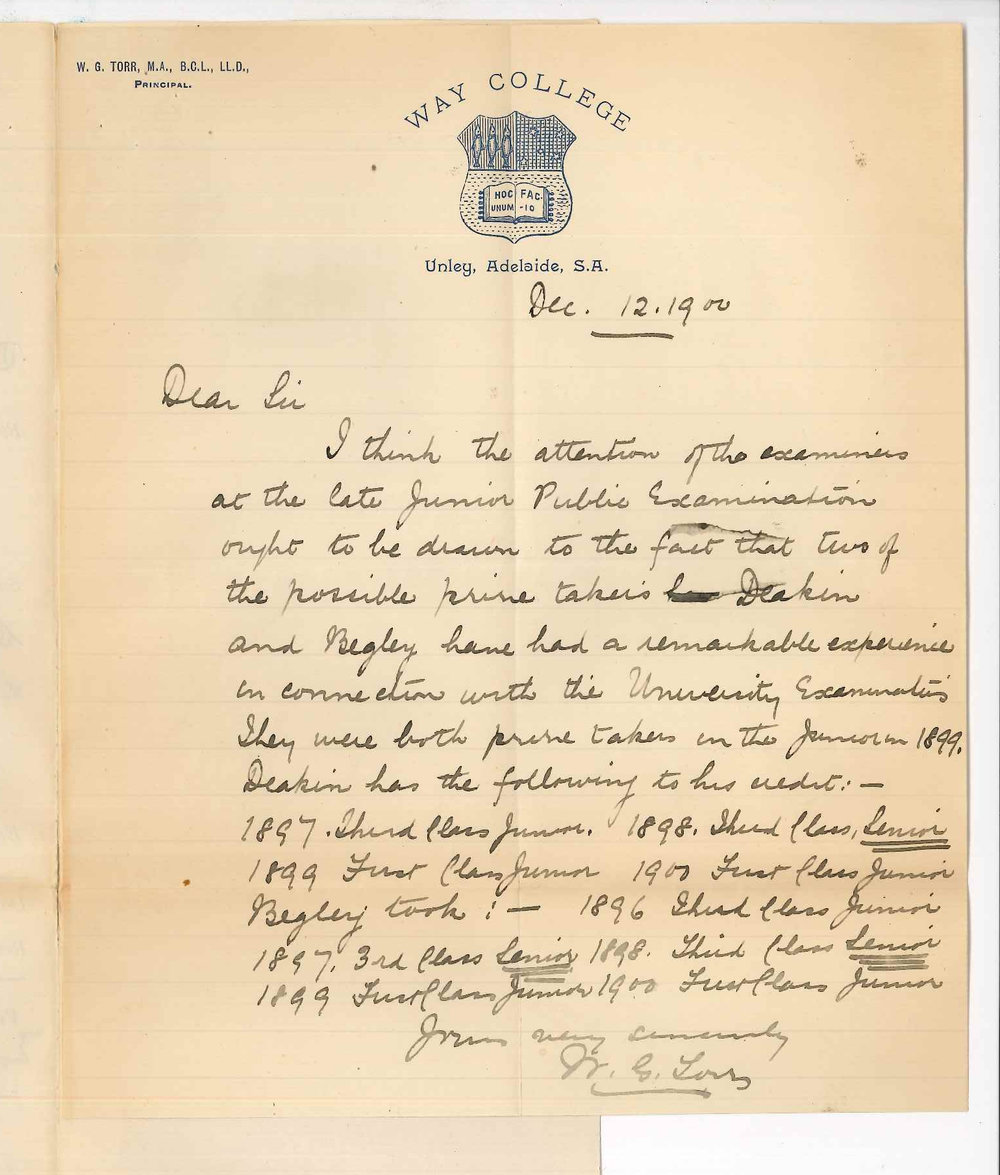 W. G. TORR, M.A., B.C.L., LL.D.,
PRINCIPAL.
WAY COLLEGE
HOC FAC.
UNUM -IO
Unley, Adelaide, S.A.
Dec. 12. 1900
Dear Sir
I think the attention of the examiners
at the late Junior Public Examination
ought to be drawn to the fact that two of
the possible prize takers Deakin
and Begley have had a remarkable experience
in connection with the University Examinations
They were both prize takers in the Junior in 1899.
Deakin has the following to his credit: —
1897. Third Class Junior. 1898. Third Class, Senior
1899 First Class Junior 1900 First Class Junior
Begley took : — 1896 Third Class Junior
1897. 3rd Class Senior 1898. Third Class Senior
1899 First Class Junior 1900 First Class Junior
Yours very sincerely
W. G. Torr